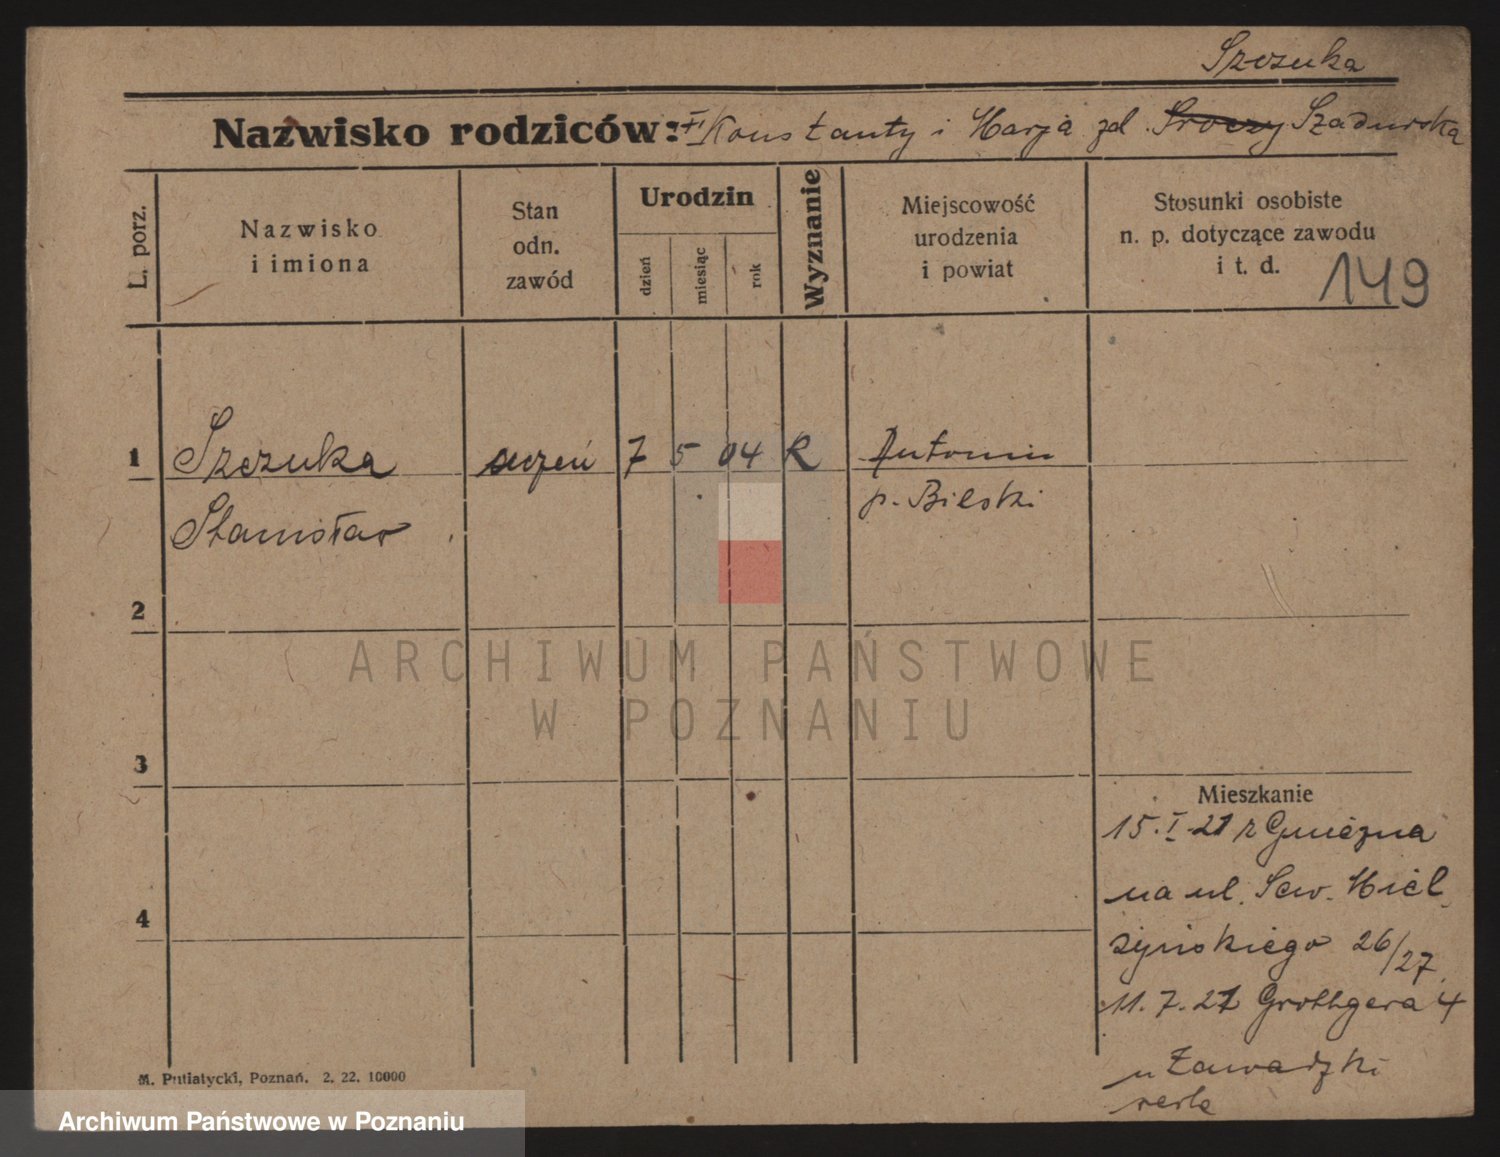 Szczuka
Nazwisko rodziców: Konstanty i Marja zd. Szadurska
L. porz.
Nazwisko i imiona
Stan odn. zawód
Urodzin
dzień
miesiąc
rok
Wyznanie
Miejscowość urodzenia i powiat
Stosunki osobiste n. p. dotyczące zawodu i t. d.
149
1
Szczuka
uczeń
7
5
04
R
Antonin
p. Bielski
Stanisław
2
3
4
Mieszkanie
15.I.21 z Gniezna
na ul. Sew. Miel
żyńskiego 26/27
11.7.21 Grottgera 4
u Zawadzki
M. Putiatycki, Poznań. 2. 22. 10000
ARCHIWUM PAŃSTWOWE
W POZNANIU
Archiwum Państwowe w Poznaniu